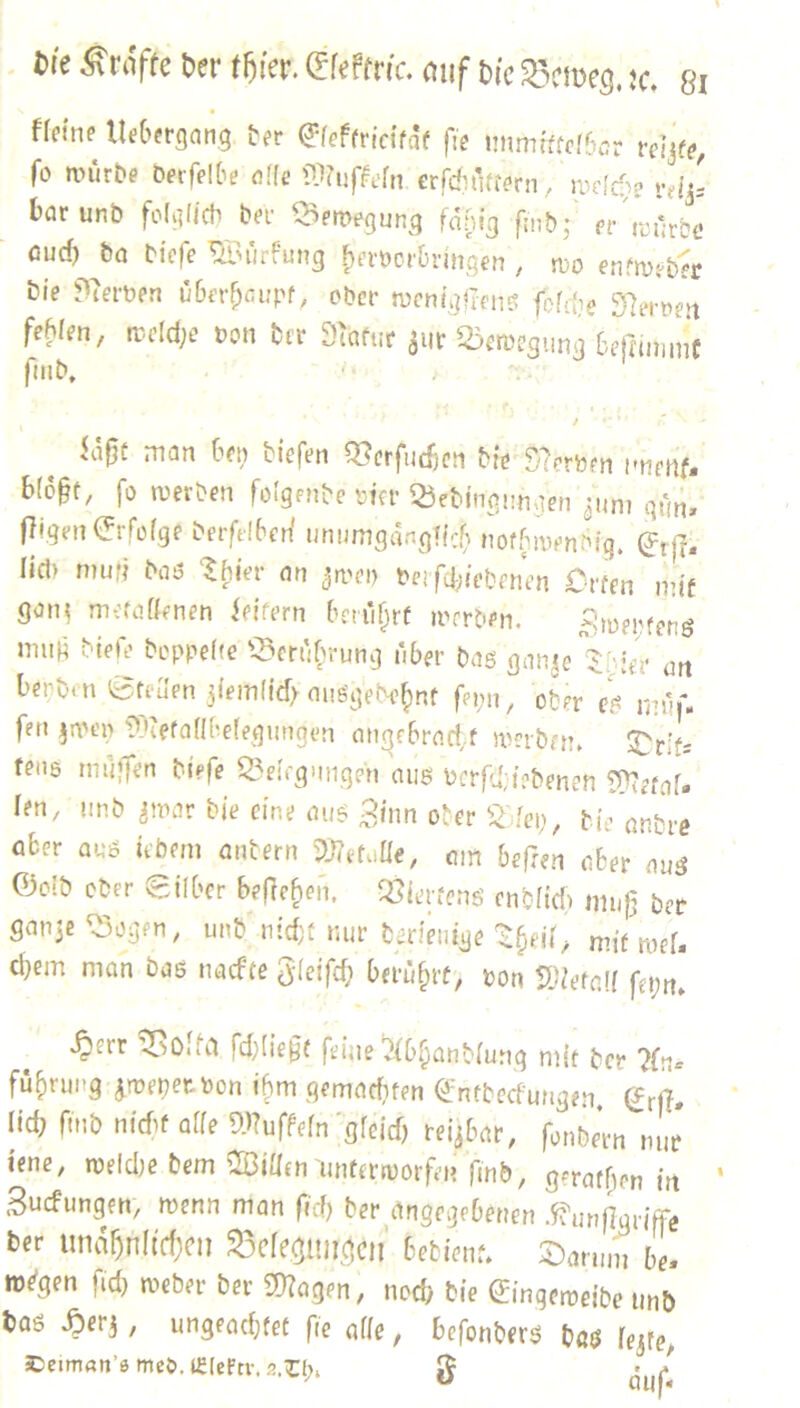 die Kräfte der thier. Elektric. auf die Beweg. ꝛc. 81
kleine Uebergang der Elektricität sie unmittelbar reizte,
so würde derselbe alle Muskeln erschüttern, welche reiz-
bar und folglich der Bewegung fähig sind; er würde
auch da diese Würkung hervorbringen, wo entweder
die Nerven überhaupt, oder wenigstens solche Nerven
fehlen, welche von der Natur zur Bewegung bestimmt
sind.
Läßt man bey diesen Versuchen die Nerven unent-
blößt, so werden folgende vier Bedingungen zum gün-
stigen Erfolge derselben unumgänglich nothwendig. Erst-
lich muß das Thier an zwey verschiedenen Orten mit
ganz metallenen Leitern berührt werden. Zweytens
muß diese doppelte Berührung über das ganze Thier an
beyden Stellen ziemlich ausgedehnt seyn, oder es müs-
sen zwey Metallbelegungen angebracht werden. Drit-
tens müssen diese Belegungen aus verschiedenen Metal-
len, und zwar die eine aus Zinn oder Bley, die andre
aber aus jedem andern Metalle, am besten aber aus
Gold oder Silber bestehen. Viertens endlich muß der
ganze Bogen, und nicht nur derjenige Theil, mit wel-
chem man das nackte Fleisch berührt, von Metall seyn.
Herr Volta schließt seine Abhandlung mit der An-
führung zweyer von ihm gemachten Entdeckungen. Erst-
lich sind nicht alle Muskeln gleich reizbar, sondern nur
jene, welche dem Willen unterworfen sind, gerathen in
Zuckungen, wenn man sich der angegebenen Kunstgriffe
der unähnlichen Belegungen bedient. Darum be-
wegen sich weder der Magen, noch die Eingeweide und
das Herz, ungeachtet sie alle, besonders das lezte,
Deiman's med. Elektr. 2. Th. F auf-